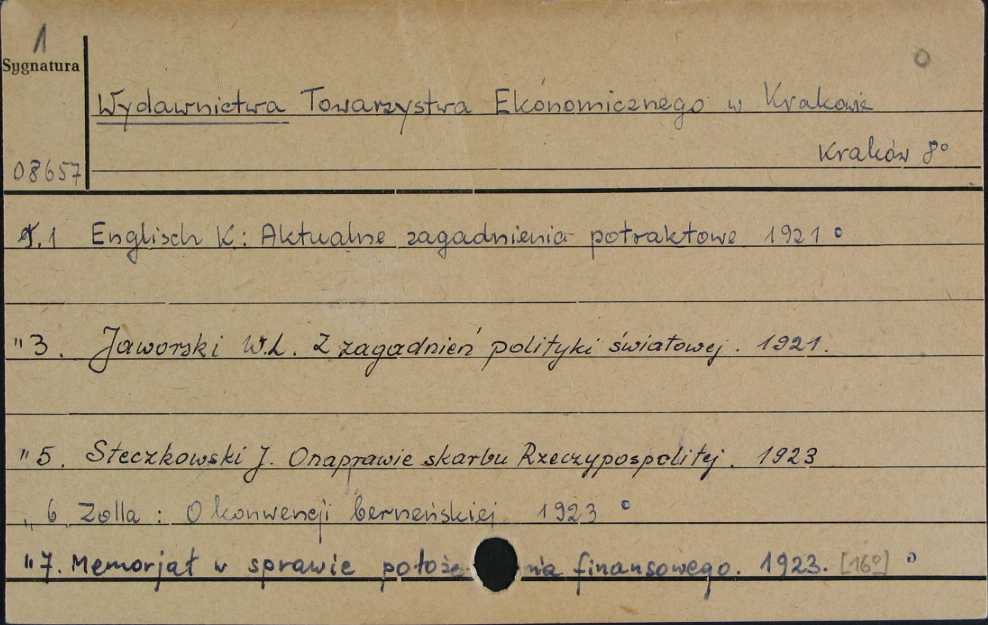 1
Sygnatura
Wydawnictwa Towarzystwa Ekonomicznego w Krakowie
08657
Kraków 8°
T.1 Englisch K: Aktualne zagadnienia potraktowe 1921 °
"3. Jaworski W.L. Z zagadnień polityki światowej. 1921.
"5. Steczkowski J. O naprawie skarbu Rzeczypospolitej. 1923
"6 Zolla: O konwencji berneńskiej 1923 °
"7. Memorjał w sprawie położenia finansowego. 1923. [16°] °